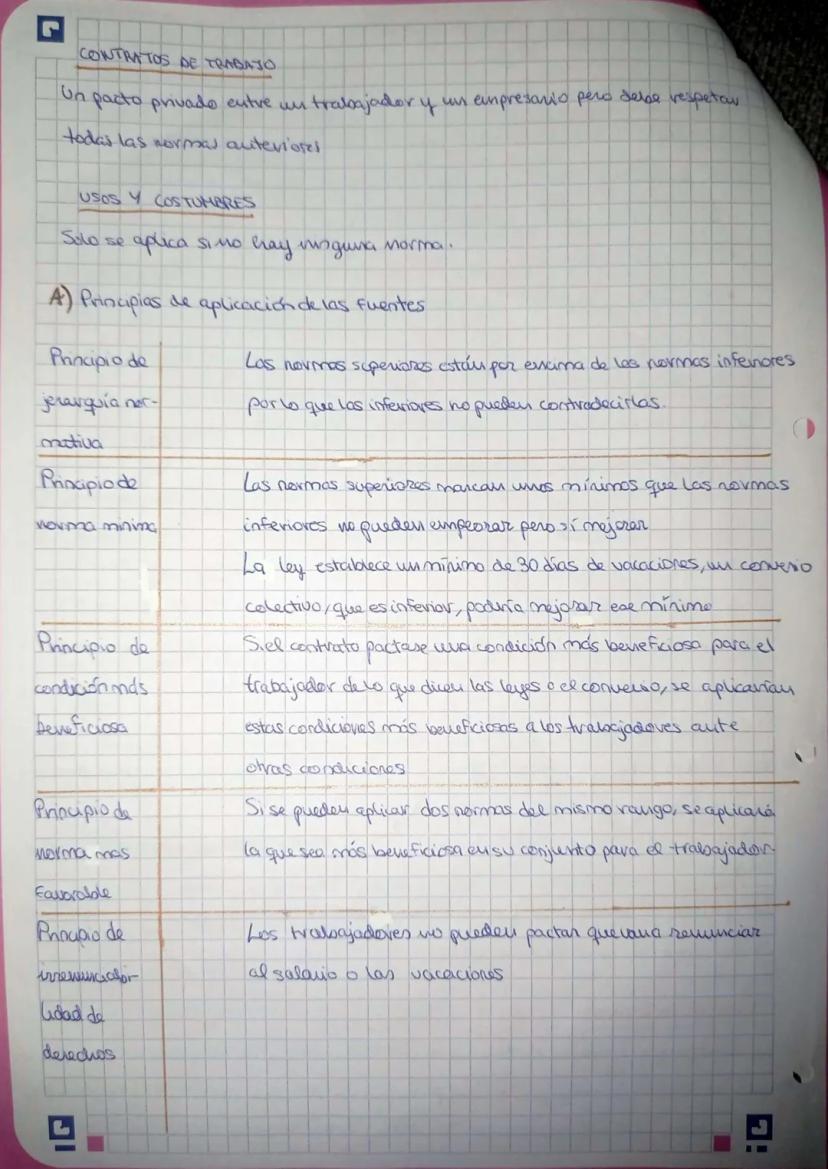 CONTRATOS DE TRABAJO
Un pacto privado entre un trabajador y un empresario pero debe respetar
todas las normas anteriores
USOS Y COSTUMBRES
Solo se aplica si no hay ninguna norma.
A) Principios de aplicación de las fuentes
Principio de
jerarquía nor-
mativa
Las normas superiores están por encima de las normas inferiores
por lo que las inferiores no pueden contradecirlas.
Principio de
norma mínima
Las normas superiores marcan unos mínimos que las normas
inferiores no pueden empeorar pero sí mejorar
La ley establece un mínimo de 30 días de vacaciones, un convenio
colectivo, que es inferior, podría mejorar ese mínimo
Principio de
condición más
beneficiosa
Si el contrato pactase una condición más beneficiosa para el
trabajador de lo que dicen las leyes o el convenio, se aplicarían
estas condiciones más beneficiosas a los trabajadores ante
otras condiciones
Principio de
norma mas
favorable
Si se pueden aplicar dos normas del mismo rango, se aplicará
la que sea más beneficiosa en su conjunto para el trabajador.
Principio de
irrenunciabi-
lidad de
derechos
Los trabajadores no pueden pactar que van a renunciar
al salario o las vacaciones